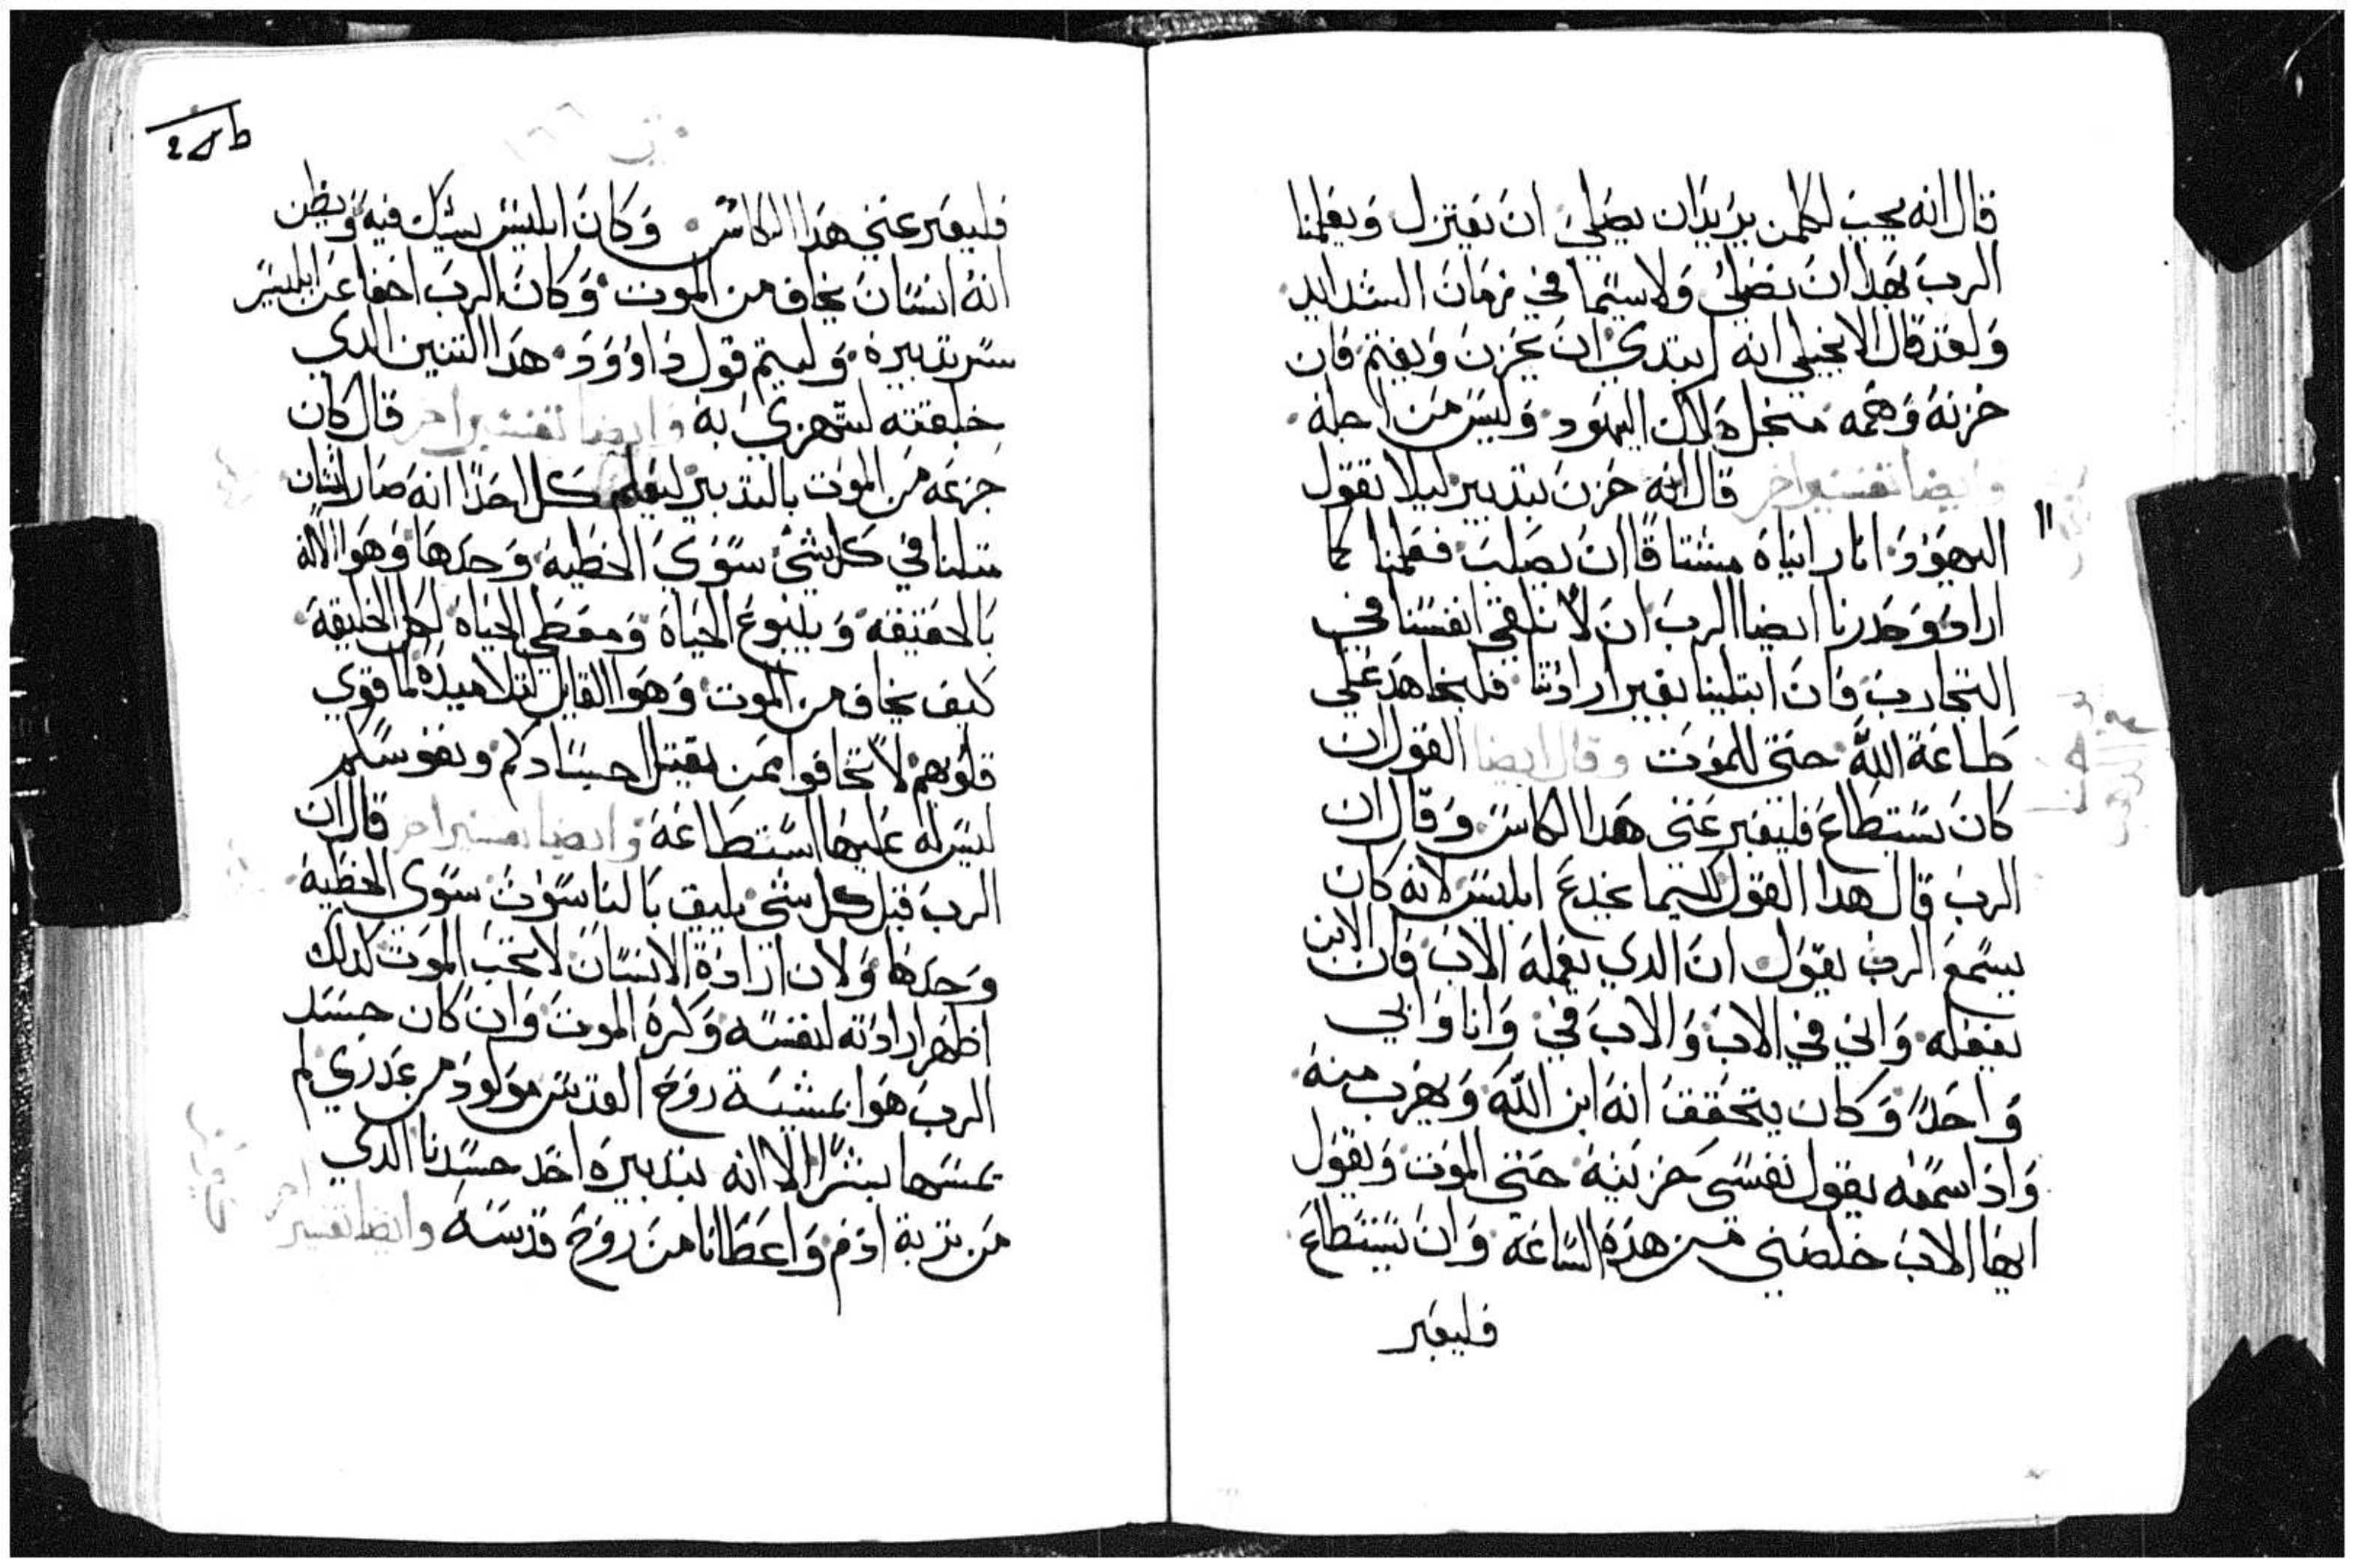 قال انه يجب لكلمن يريد ان يصلي ان يعتزل ويعلمنا
الرب بهدا ان نصلي ولاسيما في زمان الشدايد
ولقد قال الانجيلي انه ابتدي ان يحزن ويغتم فان
حزنه وهمه منجل هلاك اليهود وليس من اجله
وايضا تفسير اخر قال انه حزن بتدبير ليلا تقول
اليهود انا رايناه مشتاقا ان يصلب فعلمنا كما
اراد وحدرنا ايضا الرب ان لا نلقي انفسنا في
التجارب فان ابتلينا بغير ارادتنا فلنجاهد علي
طاعة الله حتي للموت وقال ايضا القول ان
كان يستطاع فليعبر عني هدا الكاس وقال ان
الرب قال هدا القول لكيما يخدع ابليس لانه كان
يسمع الرب يقول ان الدي يعمله الاب فان الابن
يفعله واني في الاب والاب في وانا وابي
واحد وكان يتحقق انه ابن الله ويهرب منه
واداسمعه يقول نفسي حزينه حتي الموت ويقول
ايها الاب خلصني من هده الساعة وان يستطاع
فليعبر
248
فليعبر عني هدا الكاس وكان ابليس يشك فيه ويظن
انه انسان يخاف من الموت وكان الرب اخفا عن ابليس
سر تدبيره وليتم قول داوود هدا التنين الدي
خلقته ليتهزي به وايضا تفسير اخر قال كان
جزعه من الموت بالتدبير ليعلم كل احدا انه صار انسان
متلنا في كل شي سوي الخطية وحدها وهو الاله
بالحقيقه وينبوع الحياة ومعطي الحياة لكل الخليقة
كيف يخاف من الموت وهو القايل لتلاميده لما قوي
قلوبهم لا تخافوا ممن يقتل اجسادكم ونفوسكم
ليس له عليها استطاعة وايضا تفسير اخر قال ان
الرب قبل كل شي يليق بالناسوت سوي الخطية
وحدها ولان ارادة الانسان لا تحب الموت كدلك
اظهر ارادته لنفسه وكره الموت وان كان جسد
الرب هو بمشية روح القدس مولود من عدري لم
يمسها بشر الا انه بتدبيره اخد جسدنا الدي
من تربة ادم واعطانا من روح قدسه وايضا تفسير
اخر